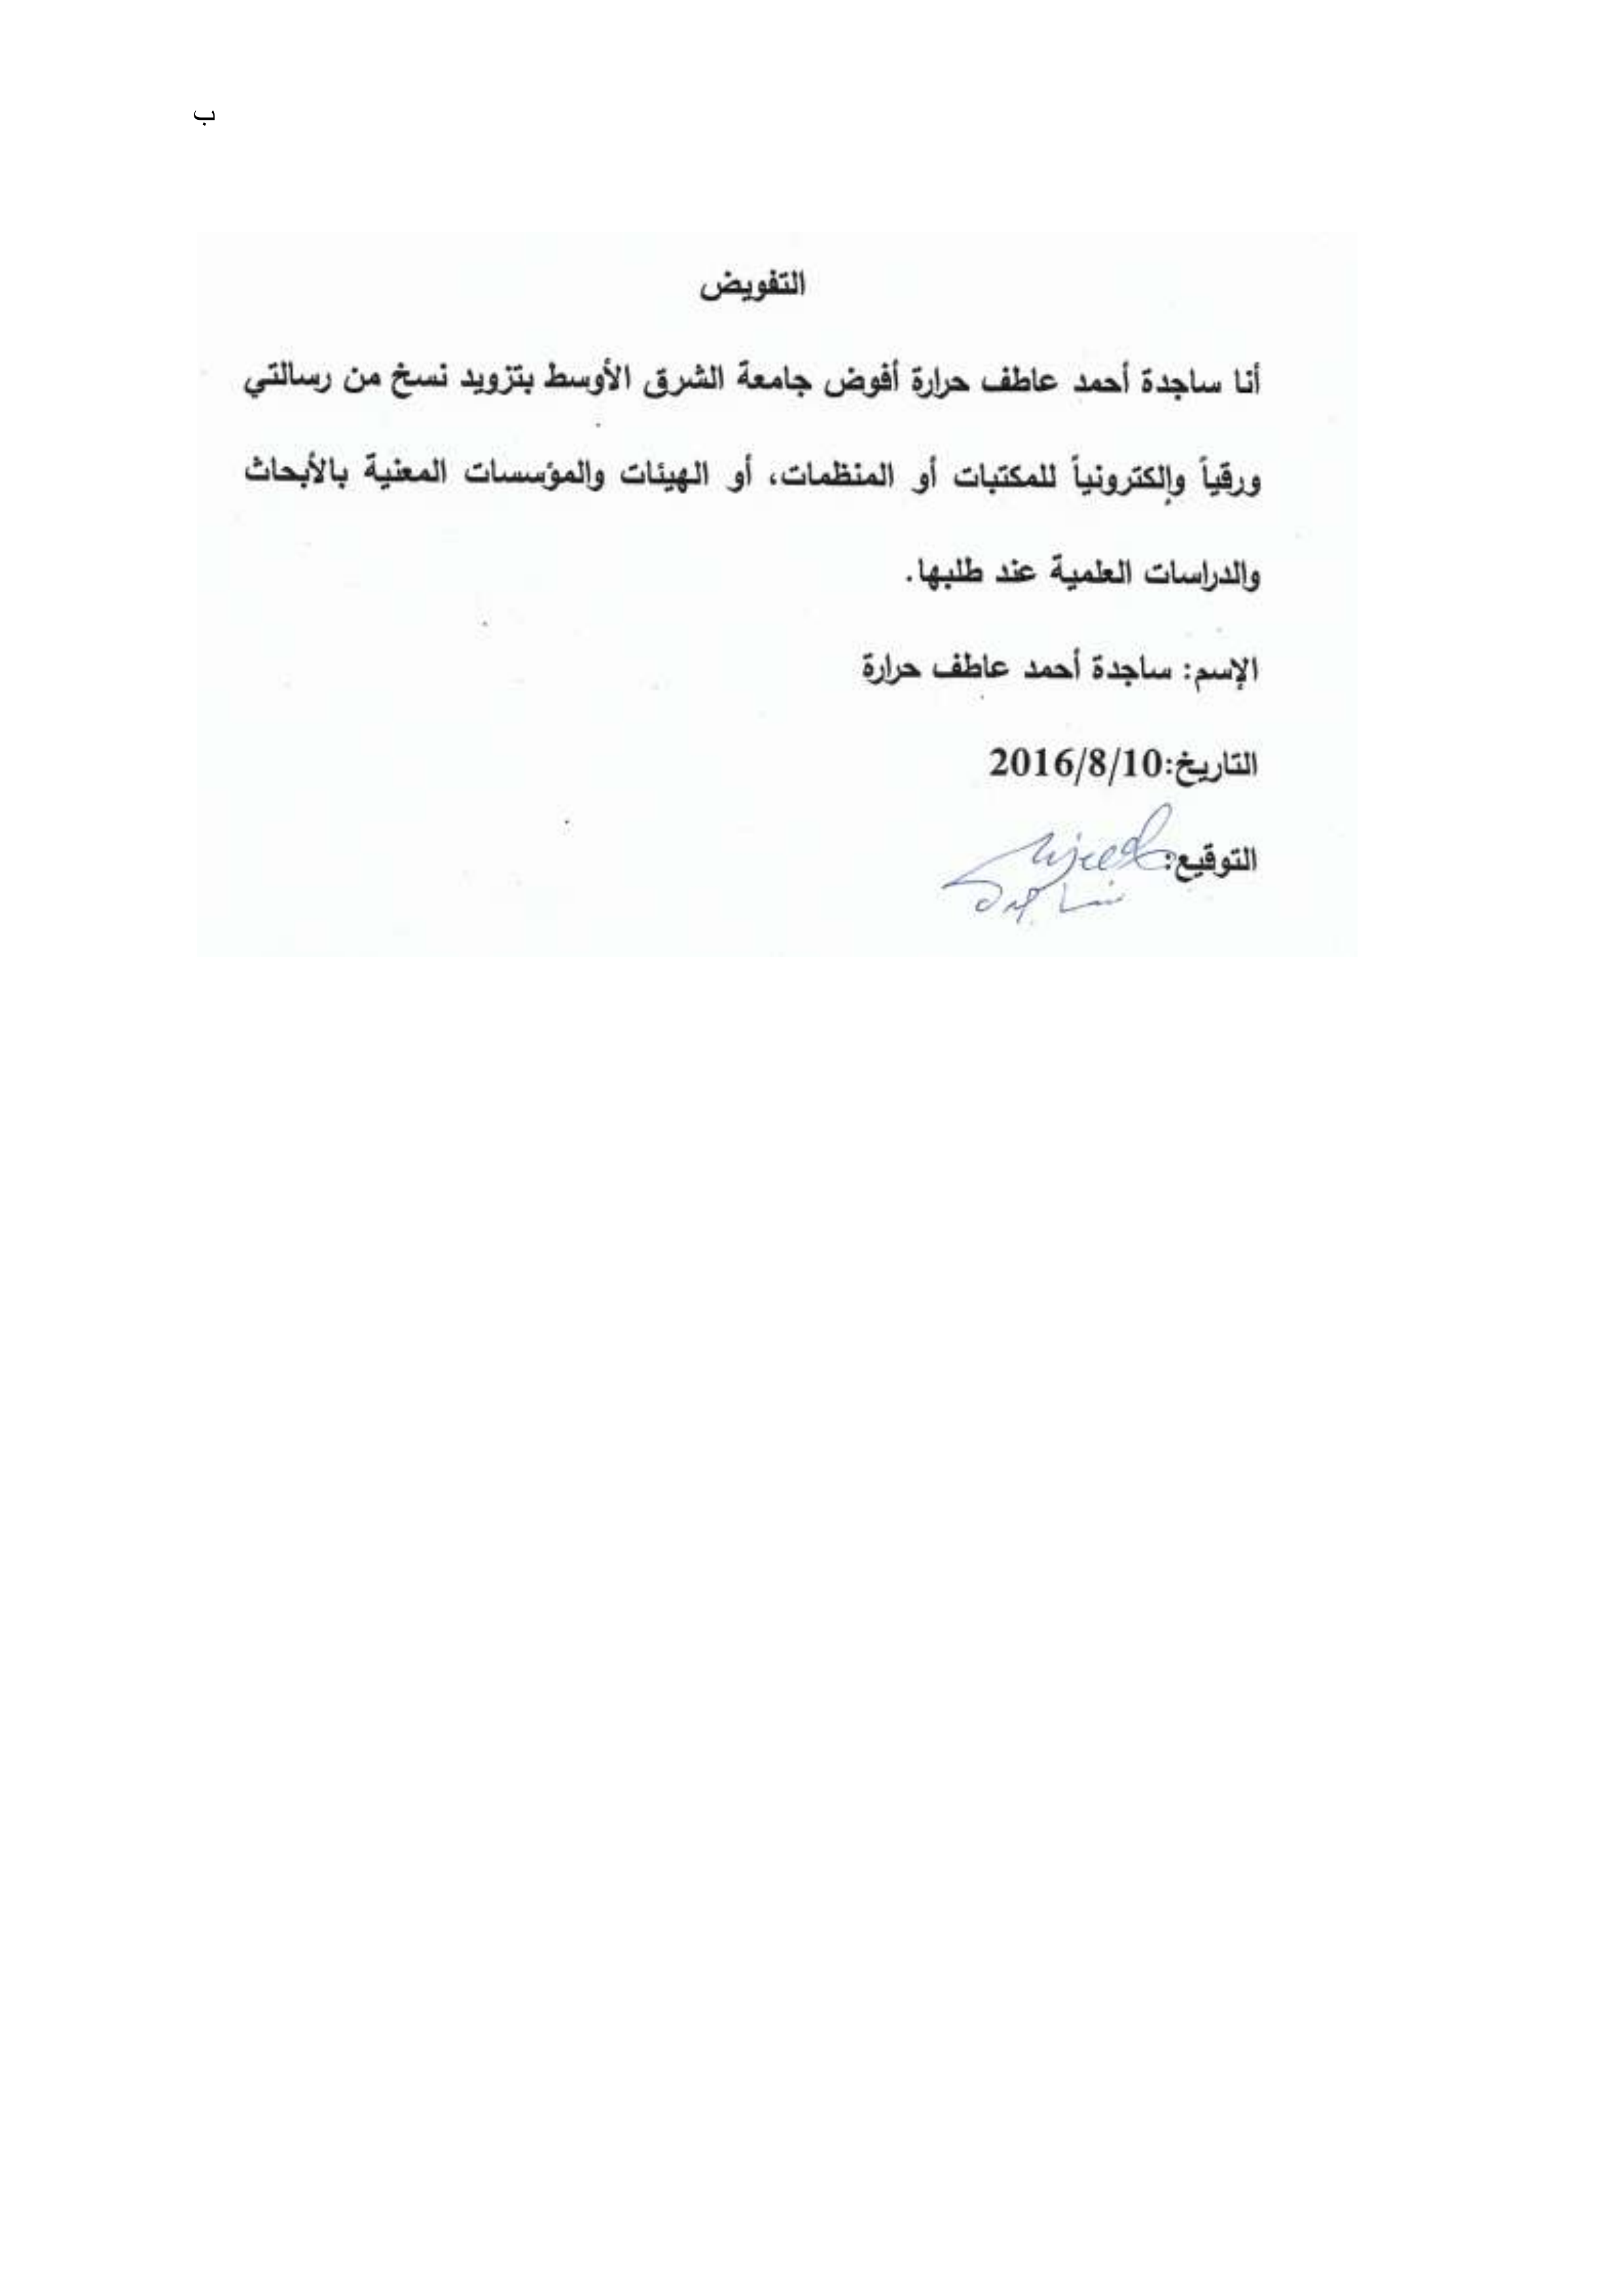 ب
التفويض
أنا ساجدة أحمد عاطف حرارة أفوض جامعة الشرق الأوسط بتزويد نسخ من رسالتي
ورقياً وإلكترونياً للمكتبات أو المنظمات، أو الهيئات والمؤسسات المعنية بالأبحاث
والدراسات العلمية عند طلبها.
الإسم: ساجدة أحمد عاطف حرارة
التاريخ:2016/8/10
التوقيع:
ساجدة